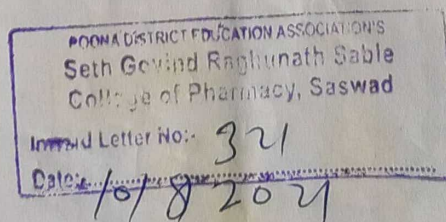 POONA DISTRICT EDUCATION ASSOCIATION'S
Seth Govind Raghunath Sable
College of Pharmacy, Saswad
Inward Letter No:- 321
Date:- 10/8/2021